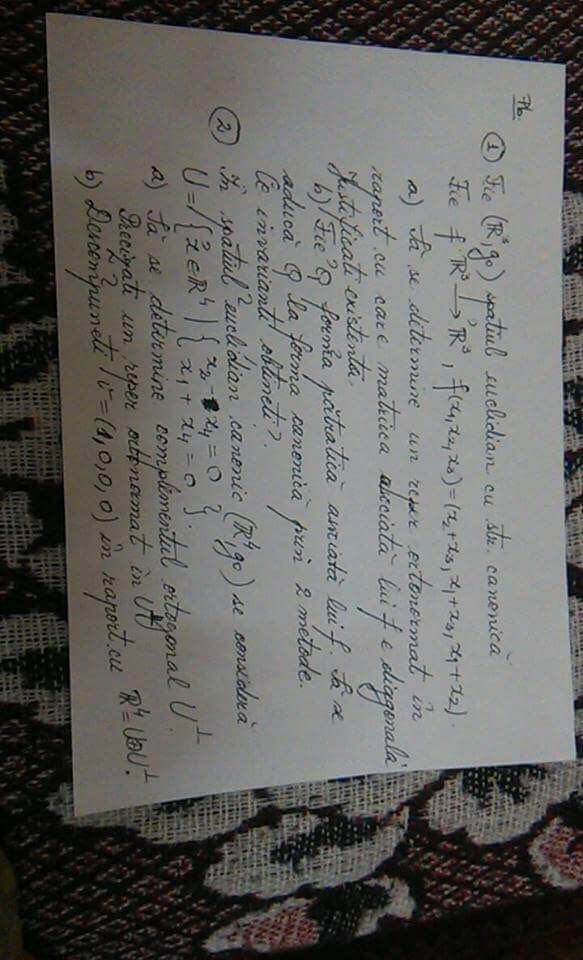 Pb.
① Fie (ℝ³, g₀) spațiul euclidian cu str. canonică
Fie f ℝ³ → ℝ³, f(x₁, x₂, x₃) = (x₂+x₃, x₁+x₃, x₁+x₂).
a) Să se determine un reper ortonormat în
raport cu care matricea asociată lui f e diagonală
Justificați existența.
b) Fie Q forma pătratică asociată lui f. Să se
aducă Q la forma canonică prin 2 metode.
Ce invarianți obțineți?
② În spațiul euclidian canonic (ℝ⁴, g₀) se consideră
U = { x ∈ ℝ⁴ | { x₂ - x₄ = 0
x₁ + x₄ = 0 }.
a) Să se determine complementul ortogonal U⊥.
Precizați un reper ortonormat în
b) Descompuneți v = (1, 0, 0, 0) în raport cu ℝ⁴ = U⊕U⊥.